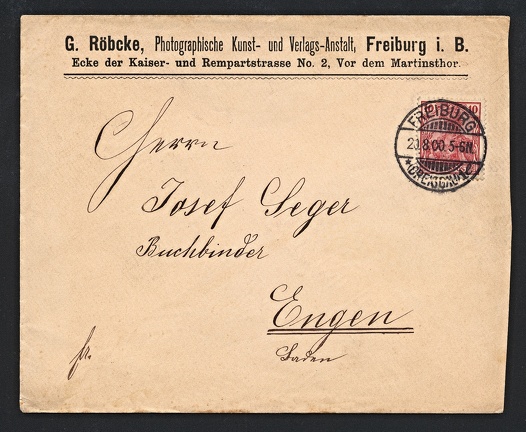 G. Röbcke, Photographische Kunst- und Verlags-Anstalt, Freiburg i. B.
Ecke der Kaiser- und Rempartstrasse No. 2, Vor dem Martinsthor.
10
FREIBURG
20.8.00.5-6N.
*(BREISGAU)2
Herrn
Josef Seger
Buchbinder
Engen
Baden
fr.